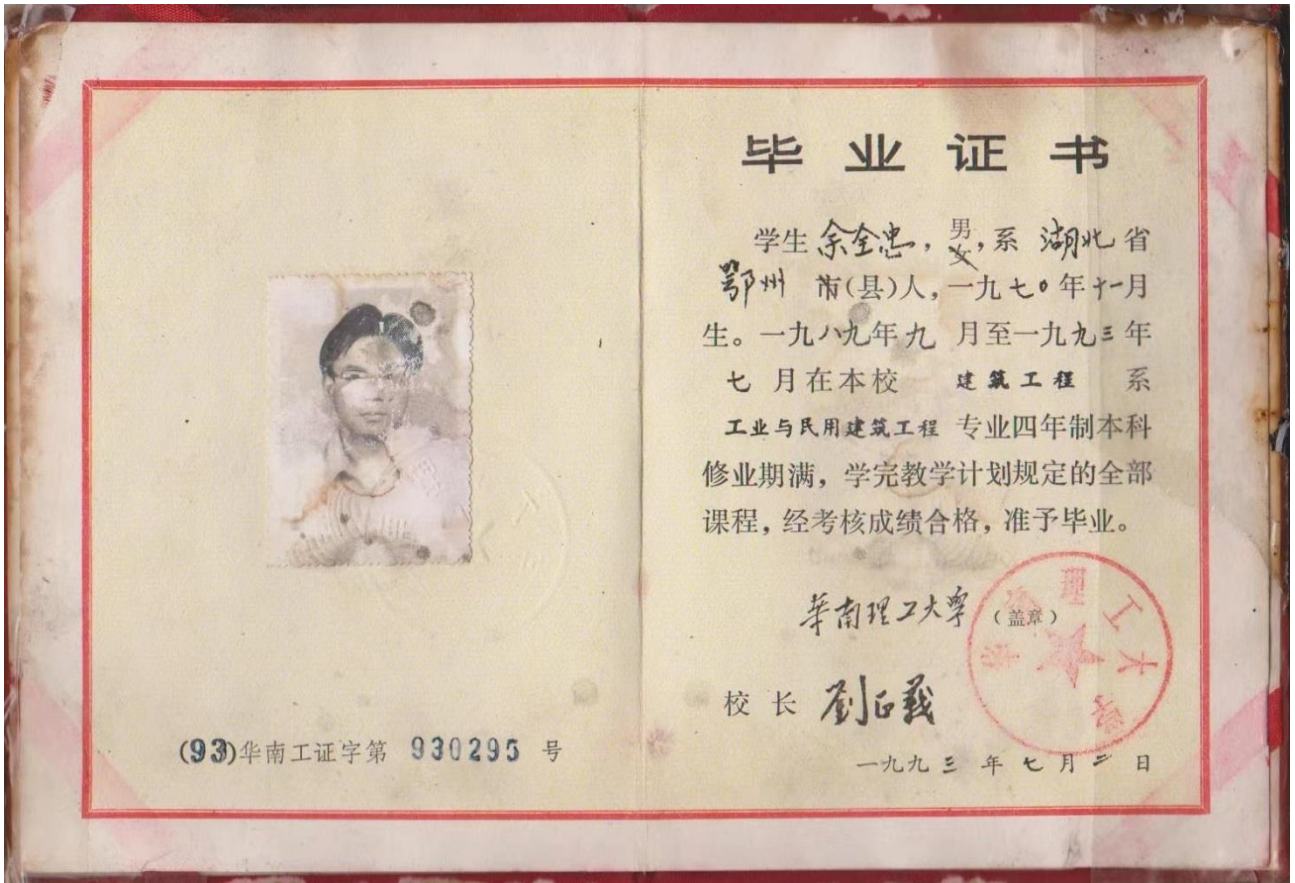 毕业证书
学生余全忠，男女，系 湖北省
鄂州 市(县)人，一九七〇年十一月
生。一九八九年九 月至一九九三年
七 月在本校 建筑工程 系
工业与民用建筑工程 专业四年制本科
修业期满，学完教学计划规定的全部
课程，经考核成绩合格，准予毕业。
華南理工大学 (盖章)
华南理工大学
校长 劉正義
(93)华南工证字第 930295 号
一九九三 年 七 月 三 日